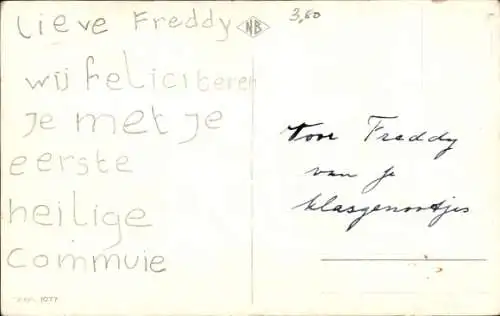 Lieve Freddy
wij feliciteren
je met je
eerste
heilige
Commuie
NB
3,80
Voor Freddy
van je
klasgenootjes
1077